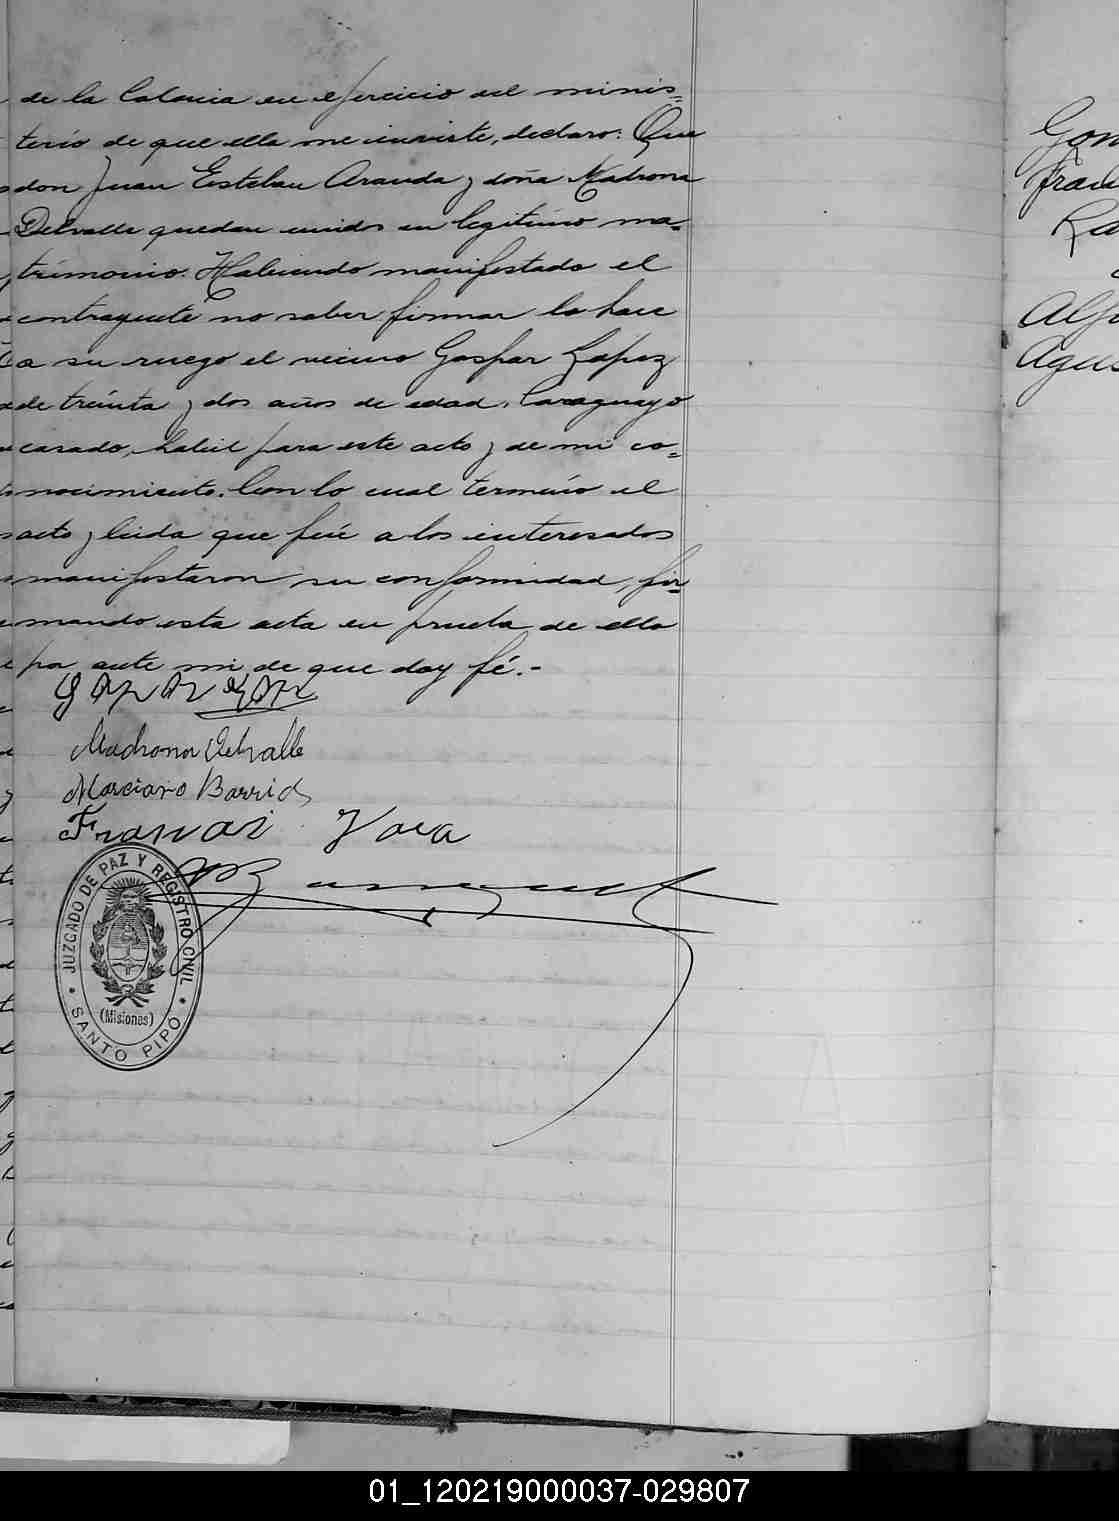 de la Colonia en ejercicio del minis=
terio de que ella me inviste, declaro: Que
don Juan Esteban Aranda y doña Matrona
Delvalle quedan unidos en legitimo ma=
trimonio. Habiendo manifestado el
contrayente no saber firmar lo hace
a su ruego el vecino Gaspar Lopez
de treinta y dos años de edad, Paraguayo
casado, habil para este acto y de mi co=
nocimiento. Con lo cual termino el
acto y leida que fué a los interesados
manifestaron su conformidad, fir=
mando esta acta en prueba de ella
por ante mi de que doy fé.-
Madrona Delvalle
Marciano Barrios
Vara
JUZGADO DE PAZ Y REGISTRO CIVIL
(Misiones)
SANTO PIPÓ
Gom
Fran
Ra
Alf
Agus
01_120219000037-029807